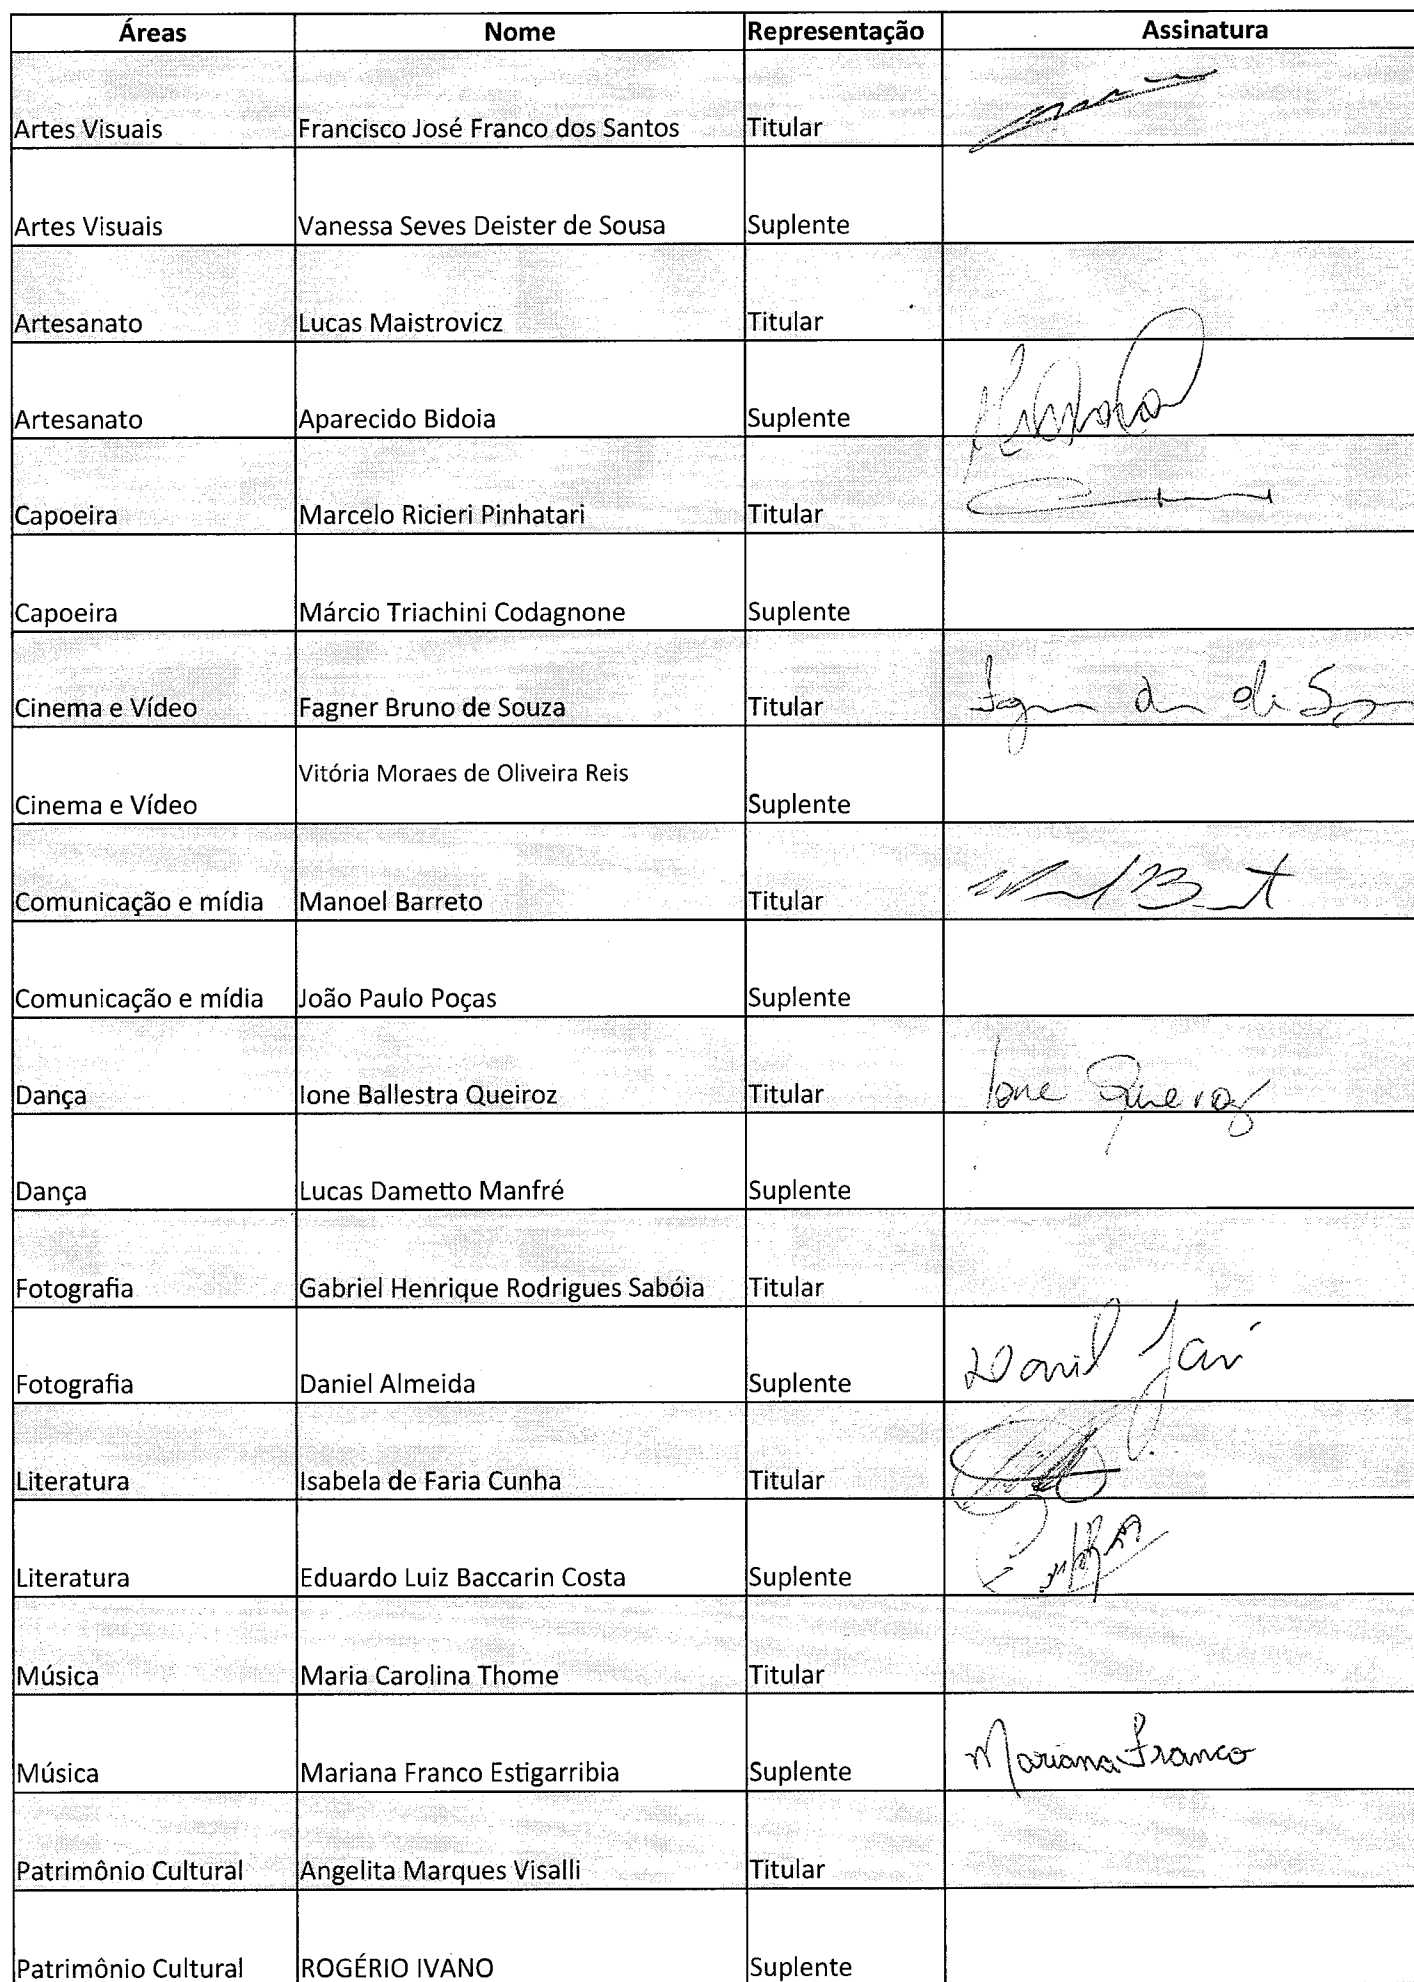 Áreas Nome Representação Assinatura
Artes Visuais Francisco José Franco dos Santos Titular
Artes Visuais Vanessa Seves Deister de Sousa Suplente
Artesanato Lucas Maistrovicz Titular
Artesanato Aparecido Bidoia Suplente
Capoeira Marcelo Ricieri Pinhatari Titular
Capoeira Márcio Triachini Codagnone Suplente
Cinema e Vídeo Fagner Bruno de Souza Titular
Cinema e Vídeo Vitória Moraes de Oliveira Reis Suplente
Comunicação e mídia Manoel Barreto Titular
Comunicação e mídia João Paulo Poças Suplente
Dança Ione Ballestra Queiroz Titular Ione Queiroz
Dança Lucas Dametto Manfré Suplente
Fotografia Gabriel Henrique Rodrigues Sabóia Titular
Fotografia Daniel Almeida Suplente Daniel
Literatura Isabela de Faria Cunha Titular
Literatura Eduardo Luiz Baccarin Costa Suplente
Música Maria Carolina Thome Titular
Música Mariana Franco Estigarribia Suplente Mariana Franco
Patrimônio Cultural Angelita Marques Visalli Titular
Patrimônio Cultural ROGÉRIO IVANO Suplente